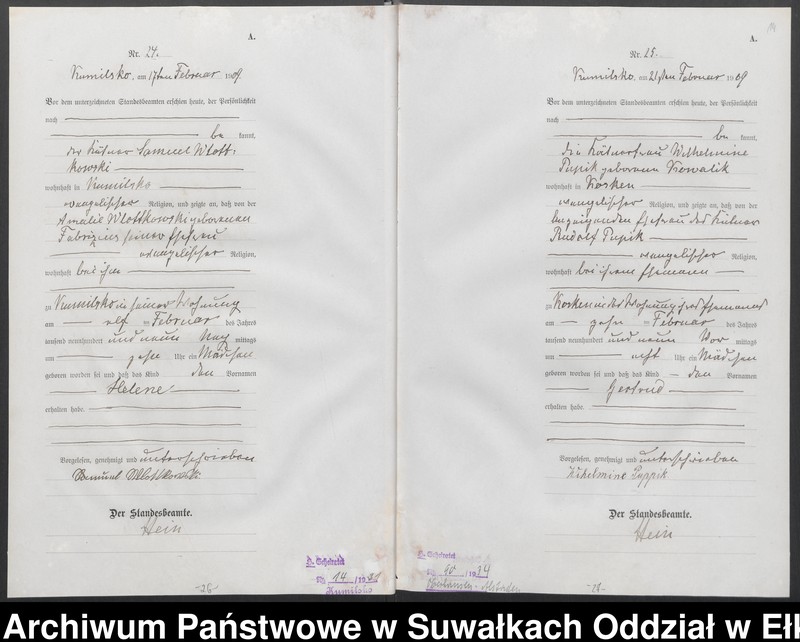 A.
Nr. 24.
Kumilsko, am 17ten Februar 1909.
Vor dem unterzeichneten Standesbeamten erschien heute, der Persönlichkeit
nach
be kannt,
der Kätner Samuel Wlott-
kowski
wohnhaft in Kumilsko
evangelischer Religion, und zeigte an, daß von der
Amalie Wlottkowski geborenen
Fabrizius seiner Ehefrau
evangelischer Religion,
wohnhaft bei ihm
zu Kumilsko in seiner Wohnung
am elf ten Februar des Jahres
tausend neunhundert und neun Nach mittags
um zehn Uhr ein Mädchen
geboren worden sei und daß das Kind den Vornamen
Helene
erhalten habe.
Vorgelesen, genehmigt und unterschrieben
Samuel Wlottkowski
Der Standesbeamte.
Hein
Nr. 14 /19
Kumilsko
-26-
A.
Nr. 25.
Kumilsko, am 21sten Februar 1909
Vor dem unterzeichneten Standesbeamten erschien heute, der Persönlichkeit
nach
be kannt,
die Kätnerfrau Wilhelmine
Pupik geborene Kowalik
wohnhaft in Kosken
evangelischer Religion, und zeigte an, daß von der
Anzeigenden Ehefrau des Kätner
Rudolf Pupik
evangelischer Religion,
wohnhaft bei ihrem Ehemann
zu Kosken in der Wohnung ihres Ehemanns
am zehn ten Februar des Jahres
tausend neunhundert und neun Vor mittags
um acht Uhr ein Mädchen
geboren worden sei und daß das Kind den Vornamen
Gertrud
erhalten habe.
Vorgelesen, genehmigt und unterschrieben
Wilhelmine Puppik
Der Standesbeamte.
Hein
Nr. 10 /1934
Archiwum Państwowe w Suwałkach Oddział w Eł